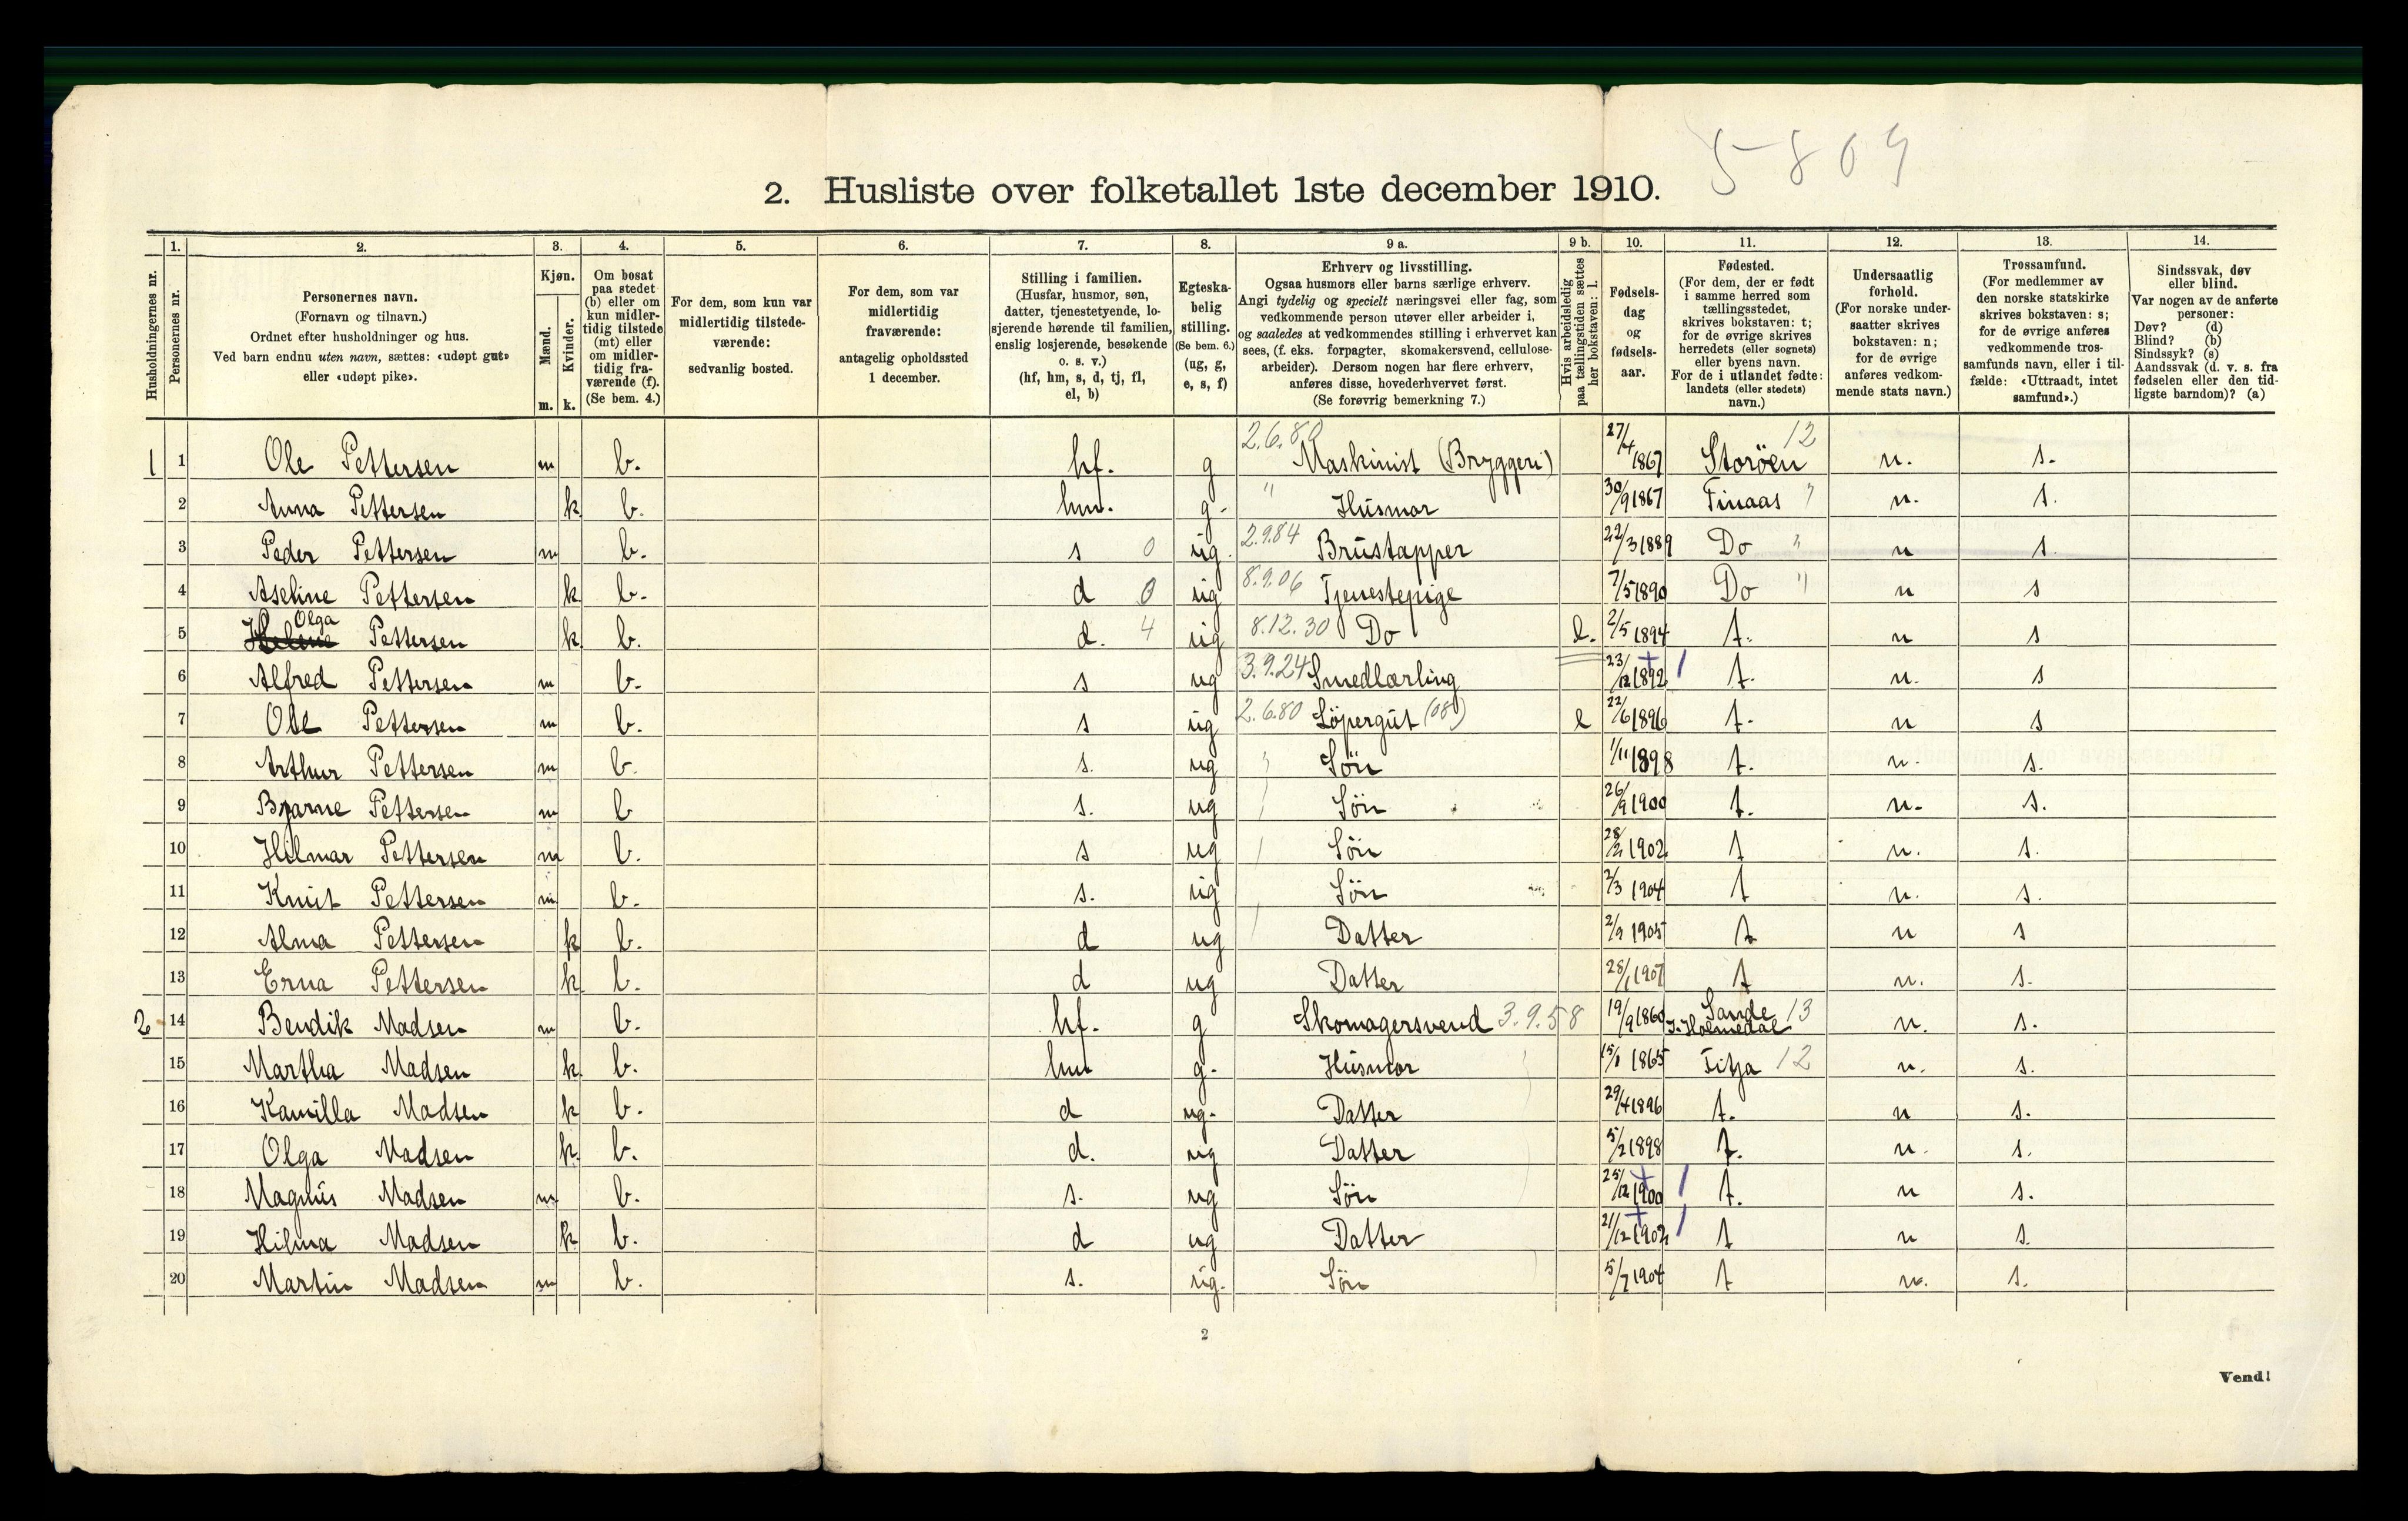 5809
2. Husliste over folketallet 1ste december 1910.
Husholdningernes nr.
1. Personernes nr.
2. Personernes navn.
(Fornavn og tilnavn.)
Ordnet efter husholdninger og hus.
Ved barn endnu uten navn, sættes: «udøpt gut»
eller «udøpt pike».
3. Kjøn.
Mænd. m.
Kvinder. k.
4. Om bosat
paa stedet
(b) eller om
kun midler-
tidig tilstede
(mt) eller
om midler-
tidig fra-
værende (f).
(Se bem. 4.)
5. For dem, som kun var
midlertidig tilstede-
værende:
sedvanlig bosted.
6. For dem, som var
midlertidig
fraværende:
antagelig opholdssted
1 december.
7. Stilling i familien.
(Husfar, husmor, søn,
datter, tjenestetyende, lo-
sjerende hørende til familien,
enslig losjerende, besøkende
o. s. v.)
(hf, hm, s, d, tj, fl,
el, b)
8. Egteska-
belig
stilling.
(Se bem. 6.)
(ug, g,
e, s, f)
9 a. Erhverv og livsstilling.
Ogsaa husmors eller barns særlige erhverv.
Angi tydelig og specielt næringsvei eller fag, som
vedkommende person utøver eller arbeider i,
og saaledes at vedkommendes stilling i erhvervet kan
sees, (f. eks. forpagter, skomakersvend, cellulose-
arbeider). Dersom nogen har flere erhverv,
anføres disse, hovederhvervet først.
(Se forøvrig bemerkning 7.)
9 b. Hvis arbeidsledig
paa tællingstiden sættes
her bokstaven: l.
10. Fødsels-
dag
og
fødsels-
aar.
11. Fødested.
(For dem, der er født
i samme herred som
tællingsstedet,
skrives bokstaven: t;
for de øvrige skrives
herredets (eller sognets)
eller byens navn.
For de i utlandet fødte:
landets (eller stedets)
navn.)
12. Undersaatlig
forhold.
(For norske under-
saatter skrives
bokstaven: n;
for de øvrige
anføres vedkom-
mende stats navn.)
13. Trossamfund.
(For medlemmer av
den norske statskirke
skrives bokstaven: s;
for de øvrige anføres
vedkommende tros-
samfunds navn, eller i til-
fælde: «Uttraadt, intet
samfund».)
14. Sindssvak, døv
eller blind.
Var nogen av de anførte
personer:
Døv? (d)
Blind? (b)
Sindssyk? (s)
Aandssvak (d. v. s. fra
fødselen eller den tid-
ligste barndom)? (a)
1 1 Ole Pettersen m b. hf. g 2.6.80 Maskinist (Bryggeri) 27/4 1867 Storöen 12 n. s.
2 Anna Pettersen k b. hm. g. " Husmor 30/9 1867 Finaas " n. s.
3 Peder Pettersen m b. s 0 ug. 2.9.84 Brustapper 22/3 1889 Do " n s.
4 Aseline Pettersen k. b. d 0 ug 8.9.06 Tjenestepige 7/5 1890 Do " n s
5 Helene Olga Pettersen k b. d. 4 ug 8.12.30 Do l. 2/5 1894 t. n s
6 Alfred Pettersen m b. s ug 3.9.24 Smedlærling 23/12 1892 t. n. s
7 Ole Pettersen m b. s ug 2.6.80 Löpergut (08) l 22/6 1896 t. n s
8 Arthur Pettersen m b. s. ug Sön 1/11 1898 t. n. s.
9 Bjarne Pettersen m b s. ug Sön 26/9 1900 t. n. s.
10 Hilmar Pettersen m b. s ug Sön 28/2 1902 t n. s.
11 Knut Pettersen m b. s. ug Sön 2/3 1904 t n. s.
12 Alma Pettersen k b. d ug Datter 2/9 1905 t n s
13 Erna Pettersen k b. d ug Datter 28/1 1907 t n. s.
2 14 Bendik Madsen m b. hf. g Skomagersvend 3.9.58 19/9 1860 Sande I. Holmedal 13 n. s.
15 Martha Madsen k b. hm g. Husmor 15/1 1865 Fitja 12 n. s.
16 Kamilla Madsen k b. d ug. Datter 29/4 1896 t. n s.
17 Olga Madsen k b. d. ug Datter 5/2 1898 t. n. s.
18 Magnus Madsen m b. s. ug Sön 25/12 1900 t. n s.
19 Hilma Madsen k b. d ug Datter 21/12 1902 t n s.
20 Martin Madsen m b. s. ug. Sön 5/7 1904 t n. s.
2
Vend!